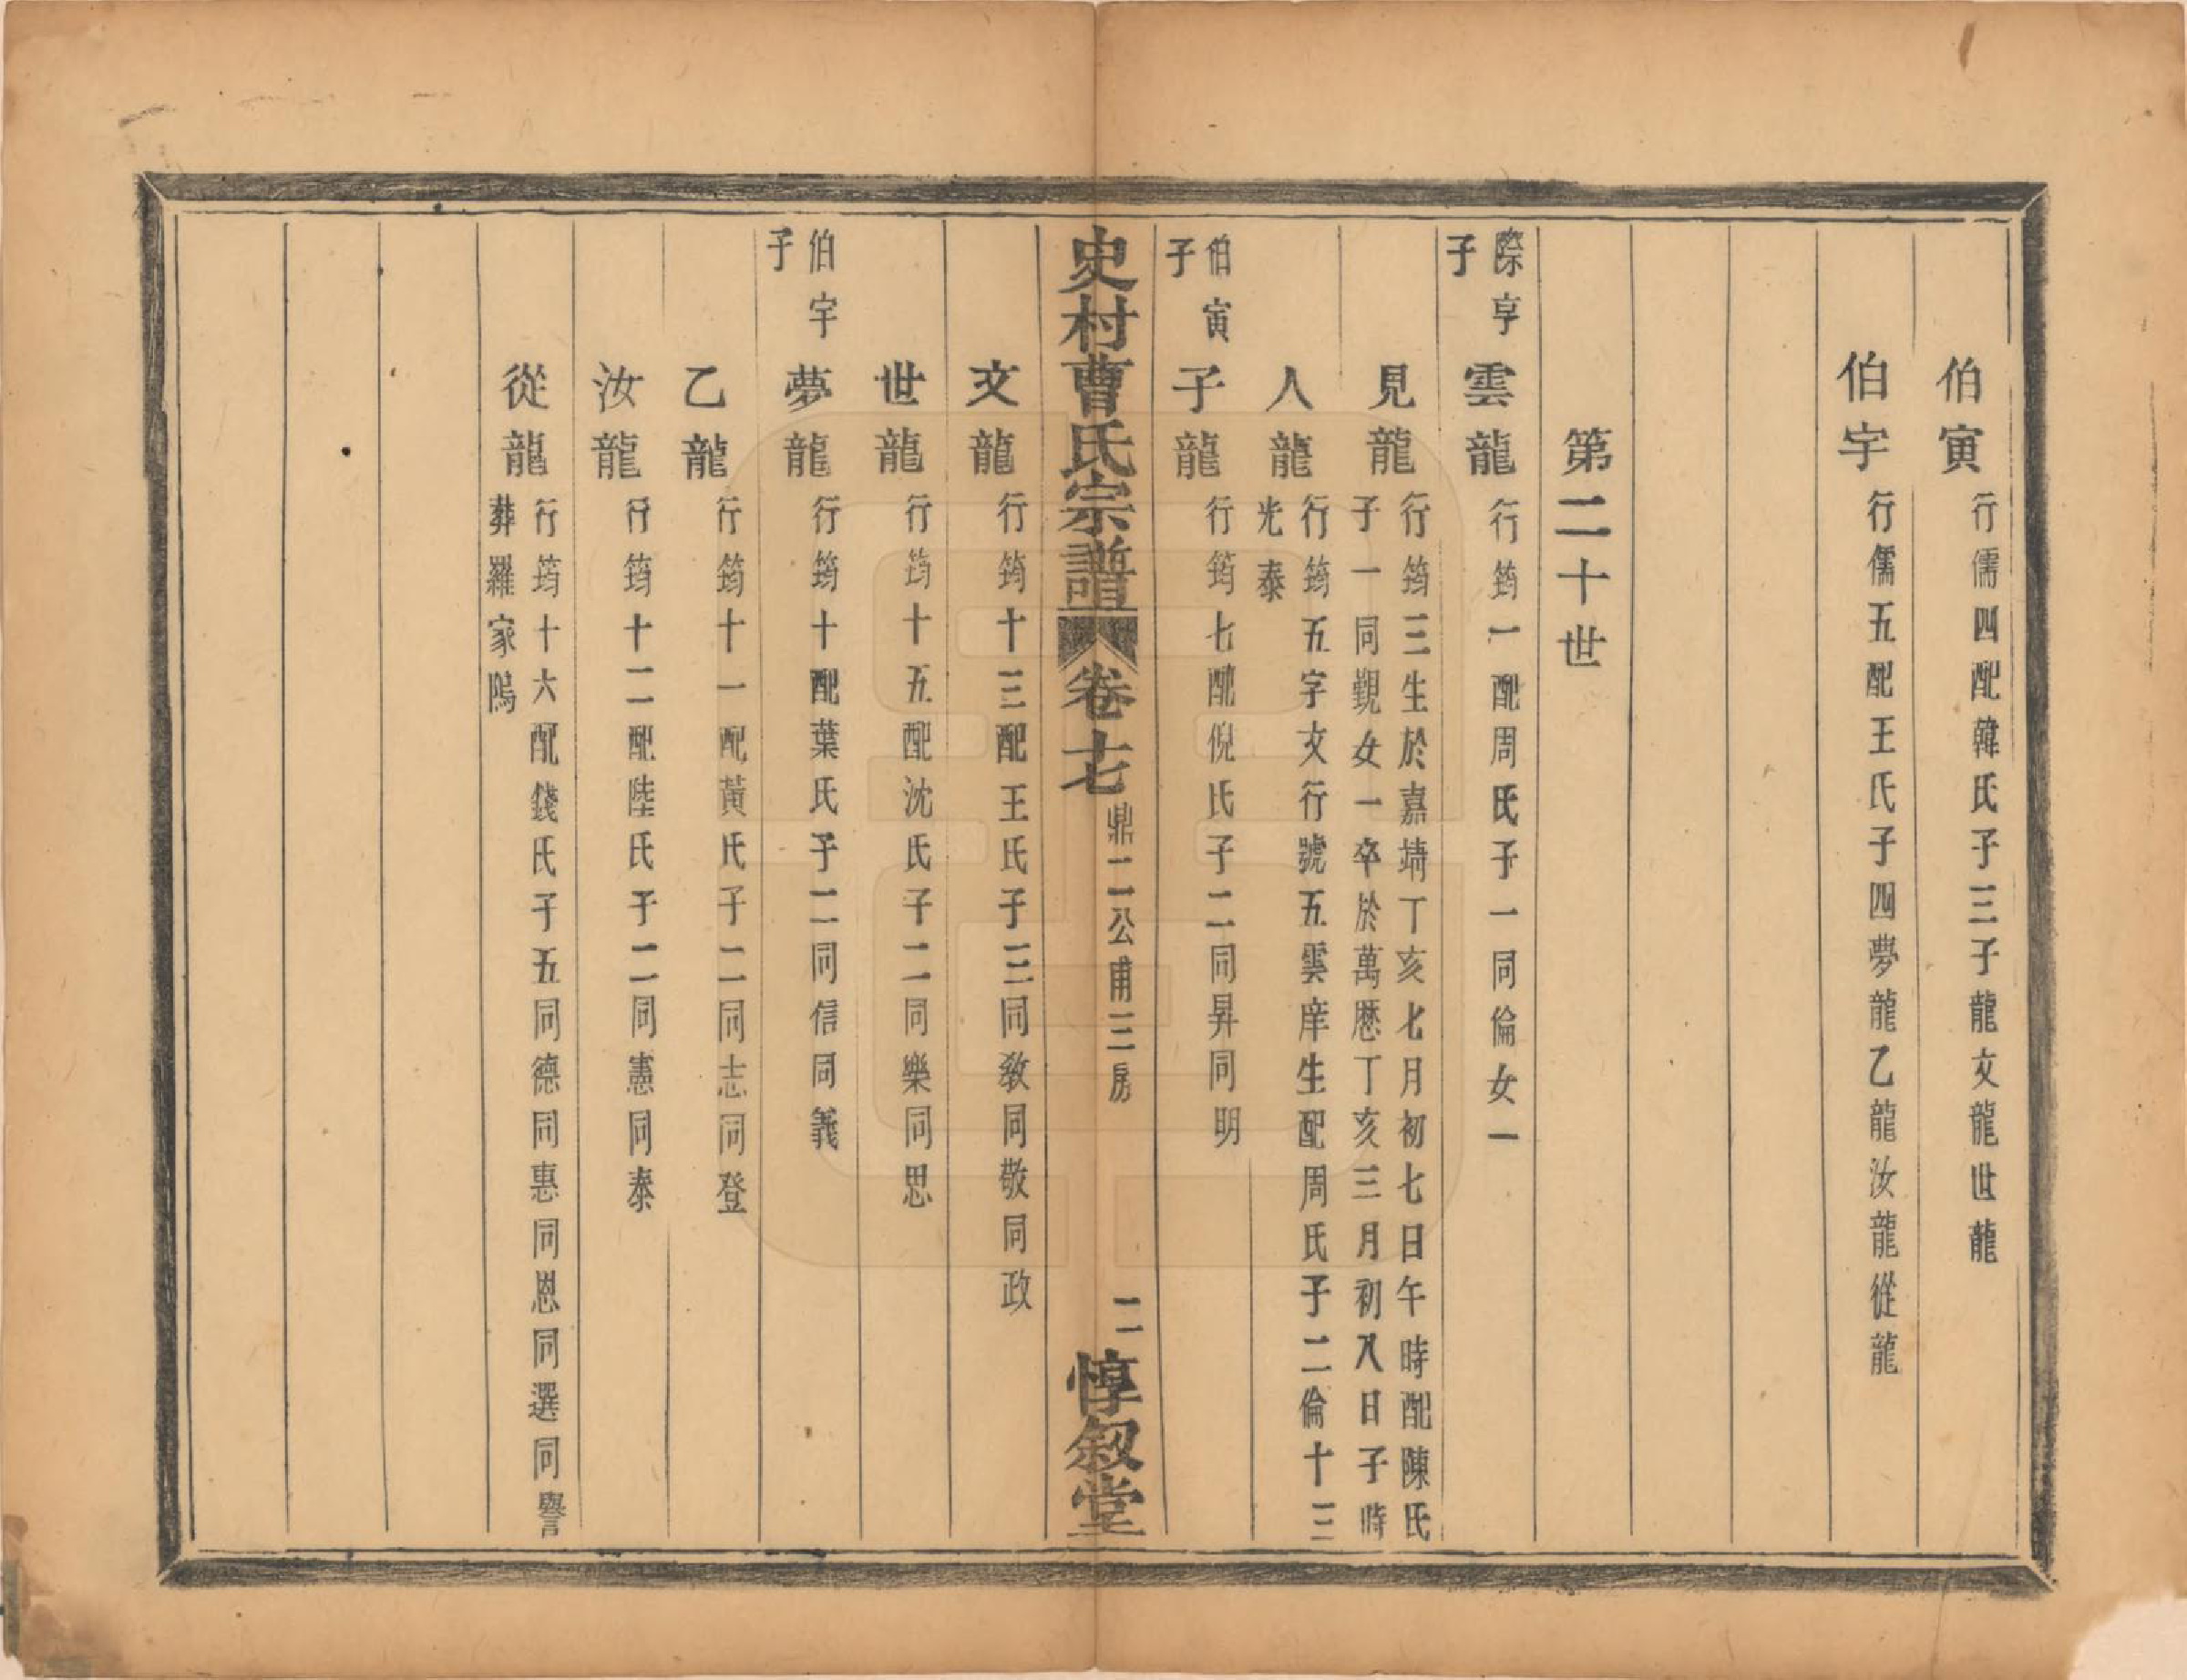 伯寅 行儒四配韓氏子三子龍文龍世龍
伯宇 行儒五配王氏子四夢龍乙龍汝龍從龍
第二十世
際亨子 雲龍 行筠一配周氏子一同倫女一
見龍 行筠三生於嘉靖丁亥七月初七日午時配陳氏
子一同觀女一卒於萬曆丁亥三月初八日子時
人龍 行筠五字文行號五雲庠生配周氏子二倫十三
光泰
伯寅子 子龍 行筠七配倪氏子二同昇同明
史村曹氏宗譜 卷十七 鼎二公甫三房 二 惇叙堂
文龍 行筠十三配王氏子三同教同敬同政
世龍 行筠十五配沈氏子二同樂同思
伯宇子 夢龍 行筠十配葉氏子二同信同義
乙龍 行筠十一配黃氏子二同志同登
汝龍 行筠十二配陸氏子二同憲同泰
從龍 行筠十六配錢氏子五同德同惠同恩同選同譽
葬羅家隝